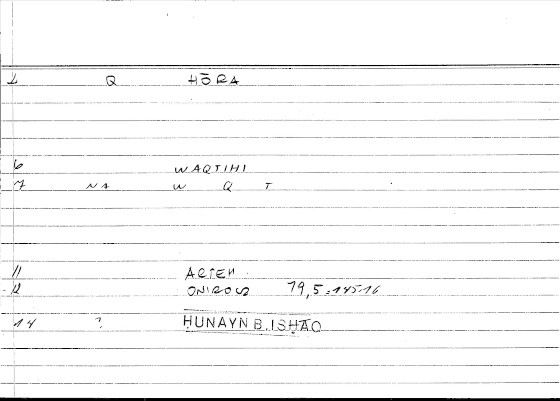 1 Q HŌRA
6 WAQTIHI
7 NA W Q T
11 ARTEM
12 ONIROUS 79,5 = 145.16
14 ? ḤUNAYN B. ISḤĀQ